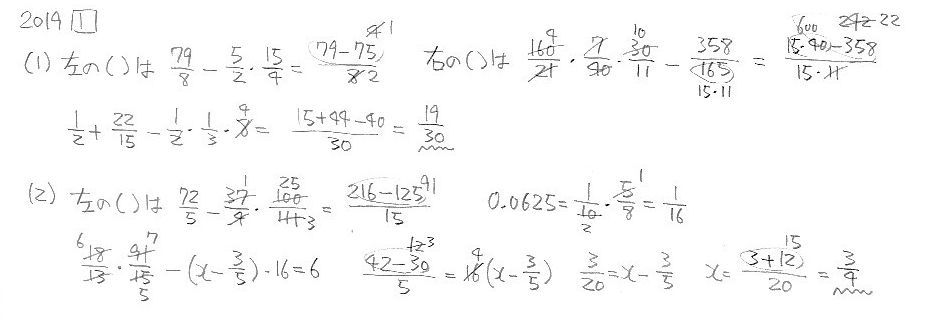 2019 1
(1) 左の()は 79/8 - 5/2 · 15/4 = (79-75)/8 4 1 2 右の()は 160/21 · 7/40 · 30/11 - 358/165 = (15·40-358)/(15·11) 4 10 15·11 600 242 22
1/2 + 22/15 - 1/2 · 1/3 · 8 = (15+44-40)/30 = 19/30 4
(2) 左の()は 72/5 - 37/9 · 100/111 = (216-125)/15 1 25 3 91 0.0625 = 1/10 · 5/8 = 1/16 1 2
18/13 · 91/15 - (x - 3/5) · 16 = 6 6 7 5 (42-30)/5 = 16(x - 3/5) 12 3 4 3/20 = x - 3/5 x = (3+12)/20 = 3/4 15